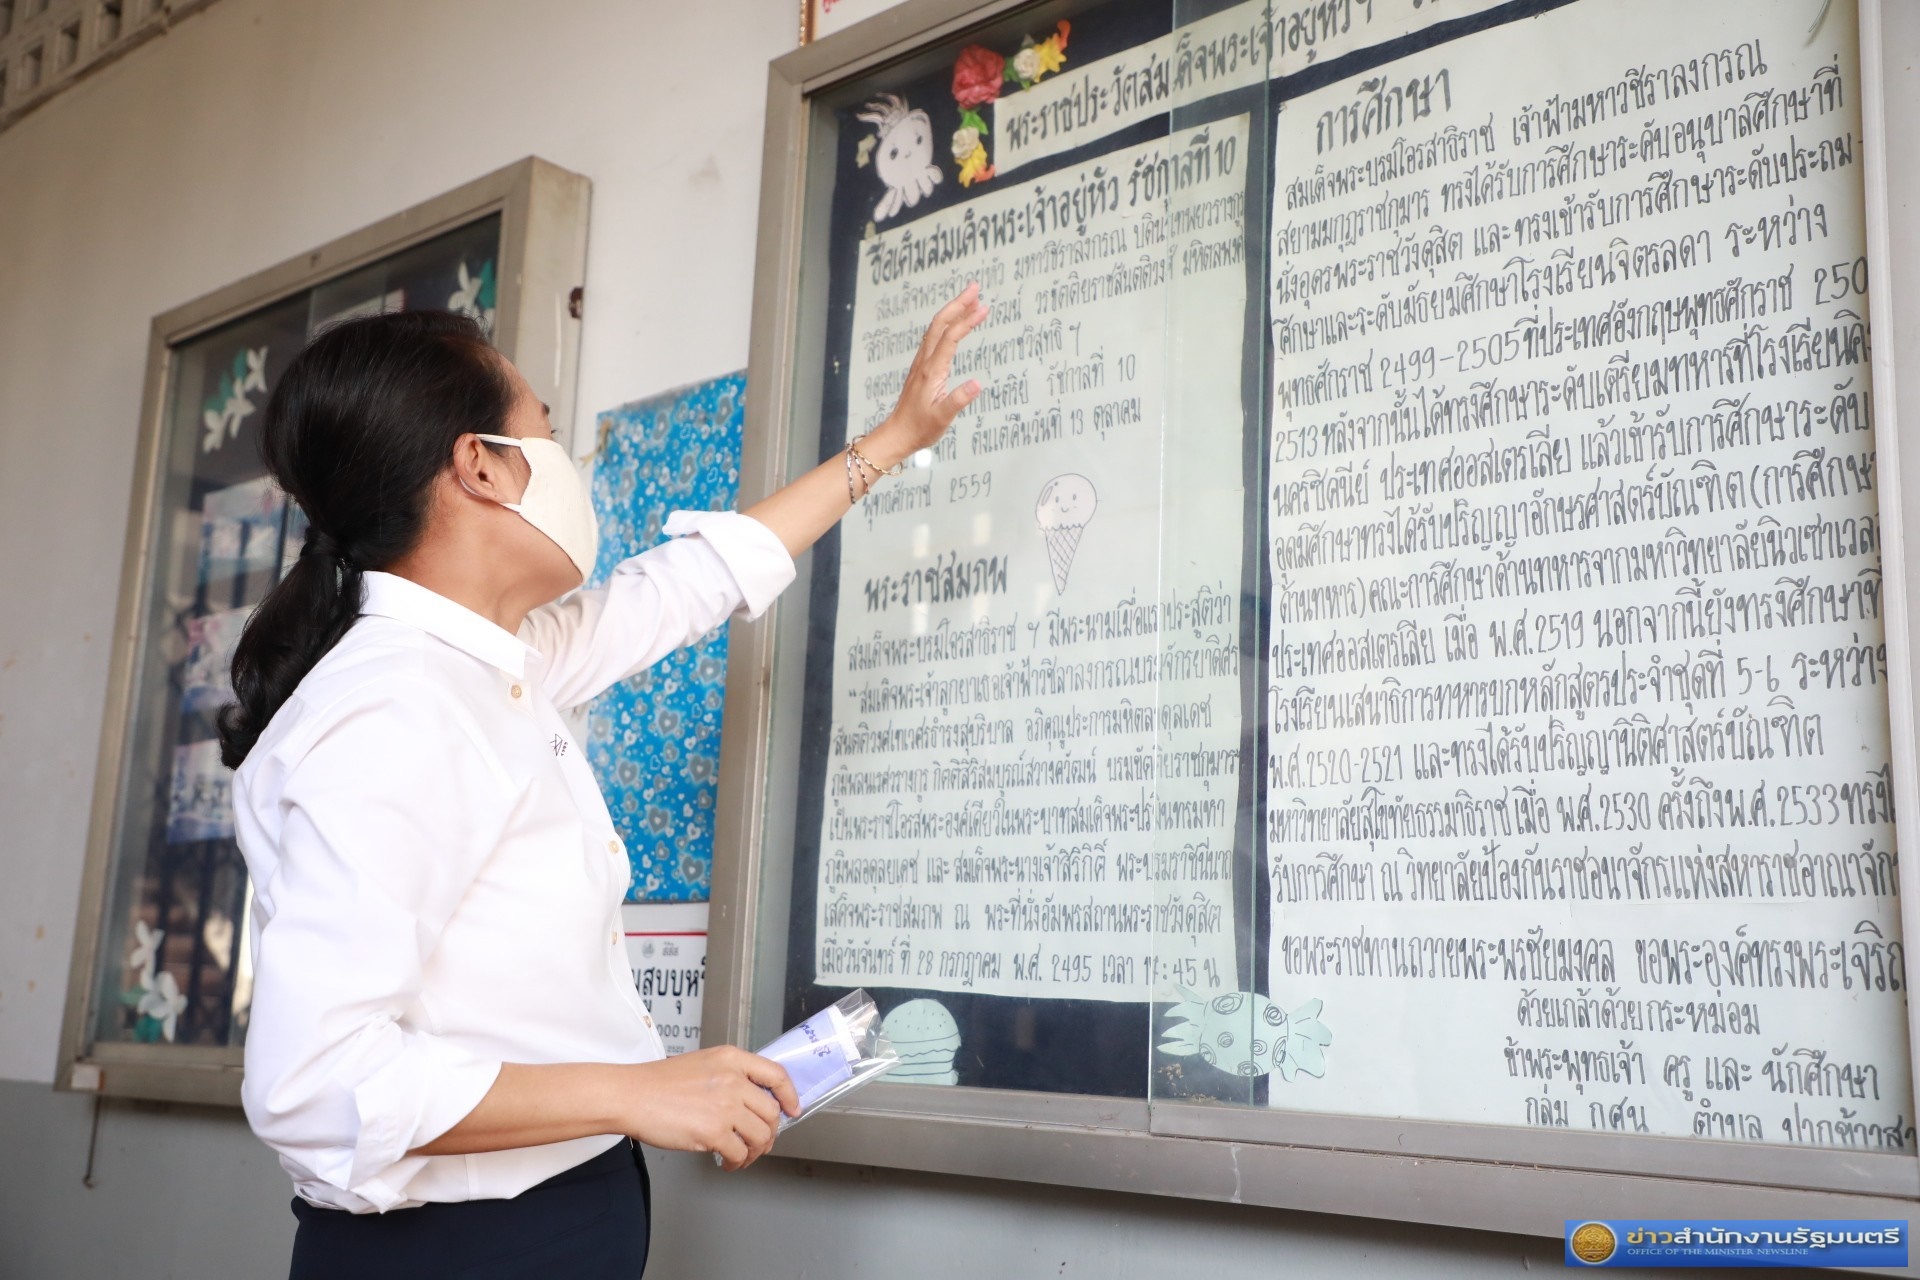 พระราชประวัติสมเด็จพระเจ้าอยู่หัวฯ
ชื่อเดิมสมเด็จพระเจ้าอยู่หัว รัชกาลที่ 10
สมเด็จพระเจ้าอยู่หัว มหาวชิราลงกรณ บดินทรเทพยวรางกูร
วรขัตติยราชสันตติวงศ์ มหิตลพงศ
รัชกาลที่ 10
ตั้งแต่คืนวันที่ 13 ตุลาคม
พุทธศักราช 2559
พระราชสมภพ
สมเด็จพระบรมโอรสาธิราช ฯ มีพระนามเมื่อแรกประสูติว่า
"สมเด็จพระเจ้าลูกยาเธอเจ้าฟ้าวชิราลงกรณบรมจักรยาดิศร
สันตติวงศเทเวศรธำรงสุบริบาล อภิคุณูประการมหิตลาดุลเดช
ภูมิพลนเรศวรางกูร กิตติสิริสมบูรณ์สวางควัฒน์ บรมขัตติยราชกุมาร"
เป็นพระราชโอรสพระองค์เดียวในพระบาทสมเด็จพระปรมินทรมหา
ภูมิพลอดุลยเดช และ สมเด็จพระนางเจ้าสิริกิติ์ พระบรมราชินีนาถ
เสด็จพระราชสมภพ ณ พระที่นั่งอัมพรสถานพระราชวังดุสิต
เมื่อวันจันทร์ ที่ 28 กรกฎาคม พ.ศ. 2495 เวลา 17:45 น
การศึกษา
สมเด็จพระบรมโอรสาธิราช เจ้าฟ้ามหาวชิราลงกรณ
สยามมกุฎราชกุมาร ทรงได้รับการศึกษาระดับอนุบาลศึกษาที่
นั่งอุดรพระราชวังดุสิต และทรงเข้ารับการศึกษาระดับประถม-
ศึกษาและระดับมัธยมศึกษาโรงเรียนจิตรลดา ระหว่าง
พุทธศักราช 2499-2505 ที่ประเทศอังกฤษพุทธศักราช 250
2513 หลังจากนั้นได้ทรงศึกษาระดับเตรียมทหารที่โรงเรียนคิง
นครซิดนีย์ ประเทศออสเตรเลีย แล้วเข้ารับการศึกษาระดับ
อุดมศึกษาทรงได้รับปริญญาอักษรศาสตร์บัณฑิต (การศึกษา
ด้านทหาร) คณะการศึกษาด้านทหารจากมหาวิทยาลัยนิวเซาเวล
ประเทศออสเตรเลีย เมื่อ พ.ศ.2519 นอกจากนี้ยังทรงศึกษาที่
โรงเรียนเสนาธิการทหารบกหลักสูตรประจำชุดที่ 5-6 ระหว่าง
พ.ศ.2520-2521 และทรงได้รับปริญญานิติศาสตร์บัณฑิต
มหาวิทยาลัยสุโขทัยธรรมาธิราช เมื่อ พ.ศ.2530 ครั้งถึง พ.ศ.2533 ทรง
รับการศึกษา ณ วิทยาลัยป้องกันราชอนาจักรแห่งสหาราชอาณาจัก
ขอพระราชทานถวายพระพรชัยมงคล ขอพระองค์ทรงพระเจริญ
ด้วยเกล้าด้วยกระหม่อม
ข้าพระพุทธเจ้า ครู และ นักศึกษา
กลุ่ม กศน. ตำบล ปากข้าวสา
มสูบบุหรี่
000 บา
2022
ข่าวสำนักงานรัฐมนตรี
OFFICE OF THE MINISTER NEWSLINE